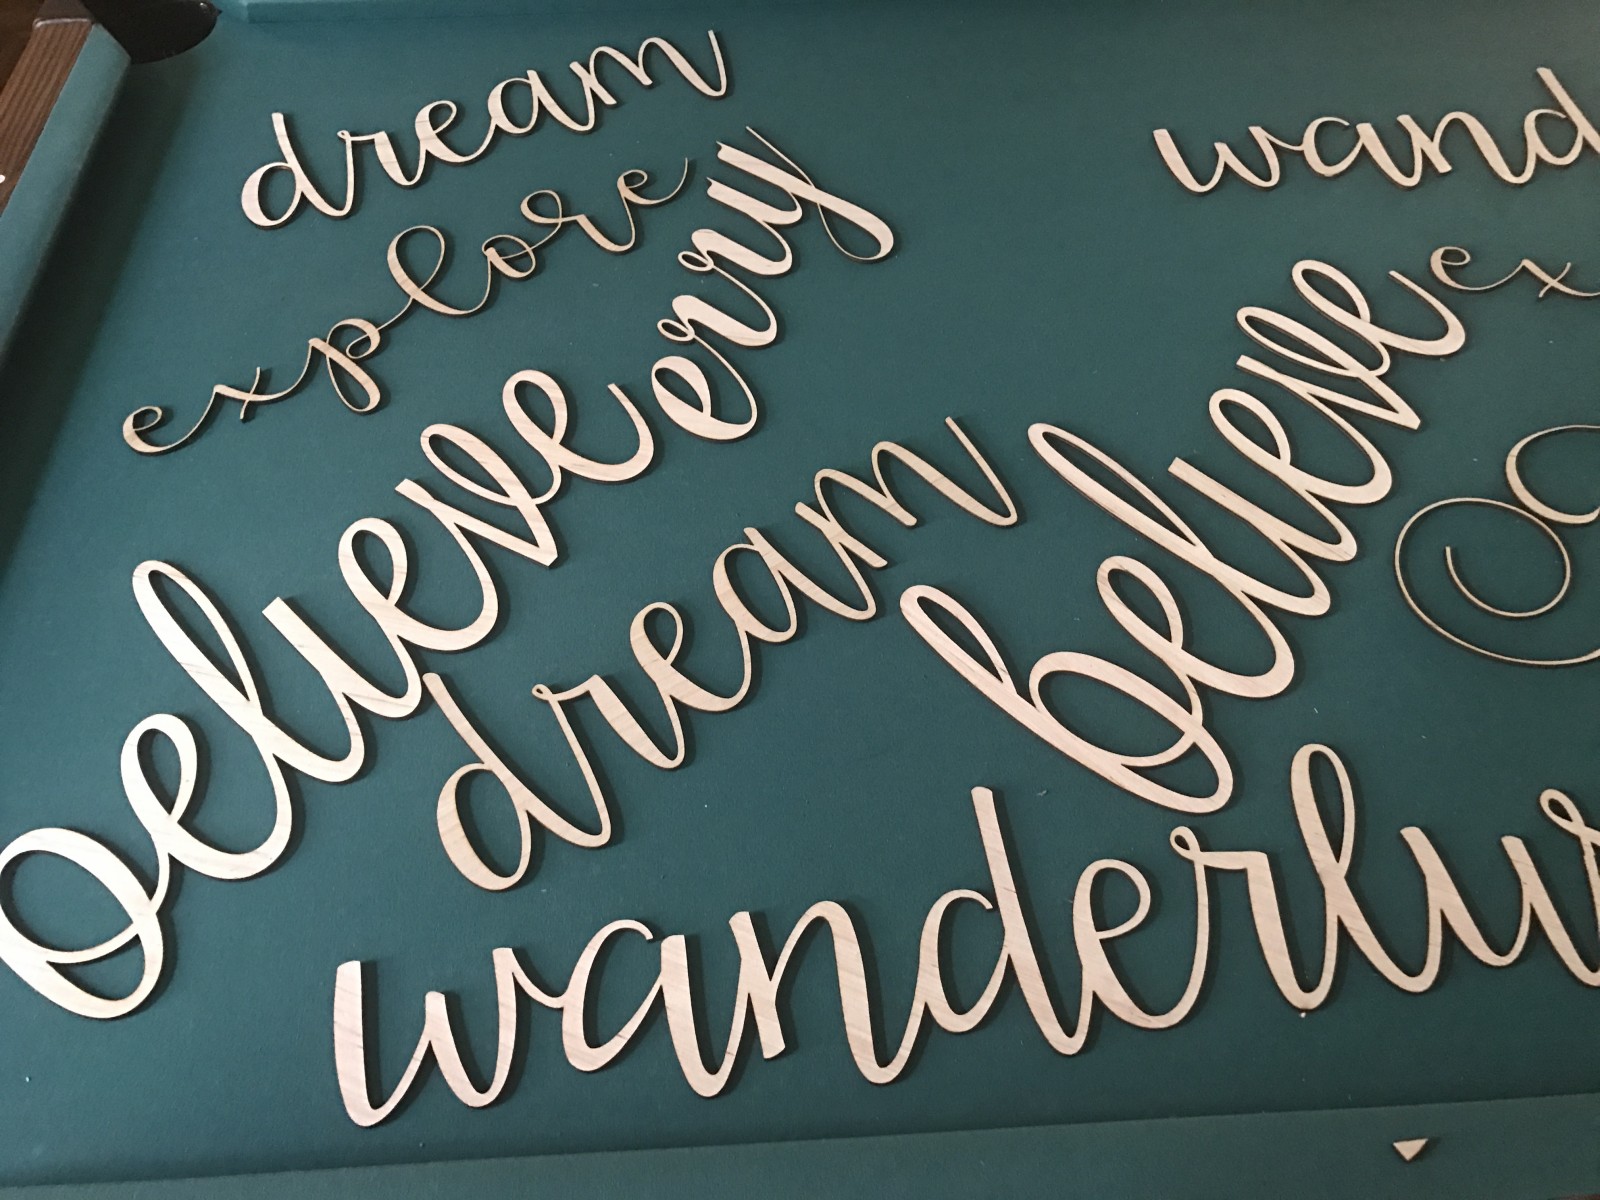 dream
wand
explore
ex
erry
believe
believe
dream
wanderlu